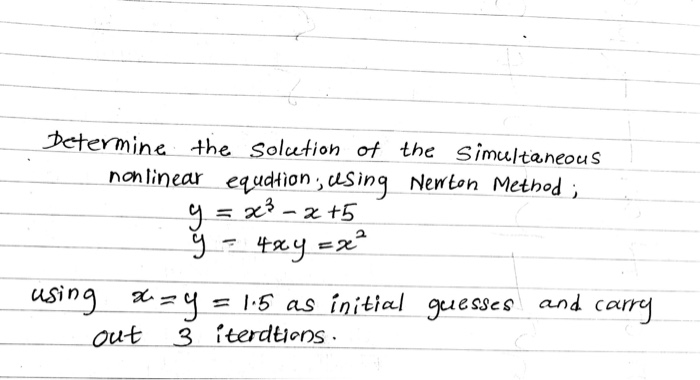 Determine the solution of the simultaneous
nonlinear equdtion; using Newton Method;
y = x³ - x +5
y - 4xy = x²
using x = y = 1.5 as initial guesses and carry
out 3 iterdtions.